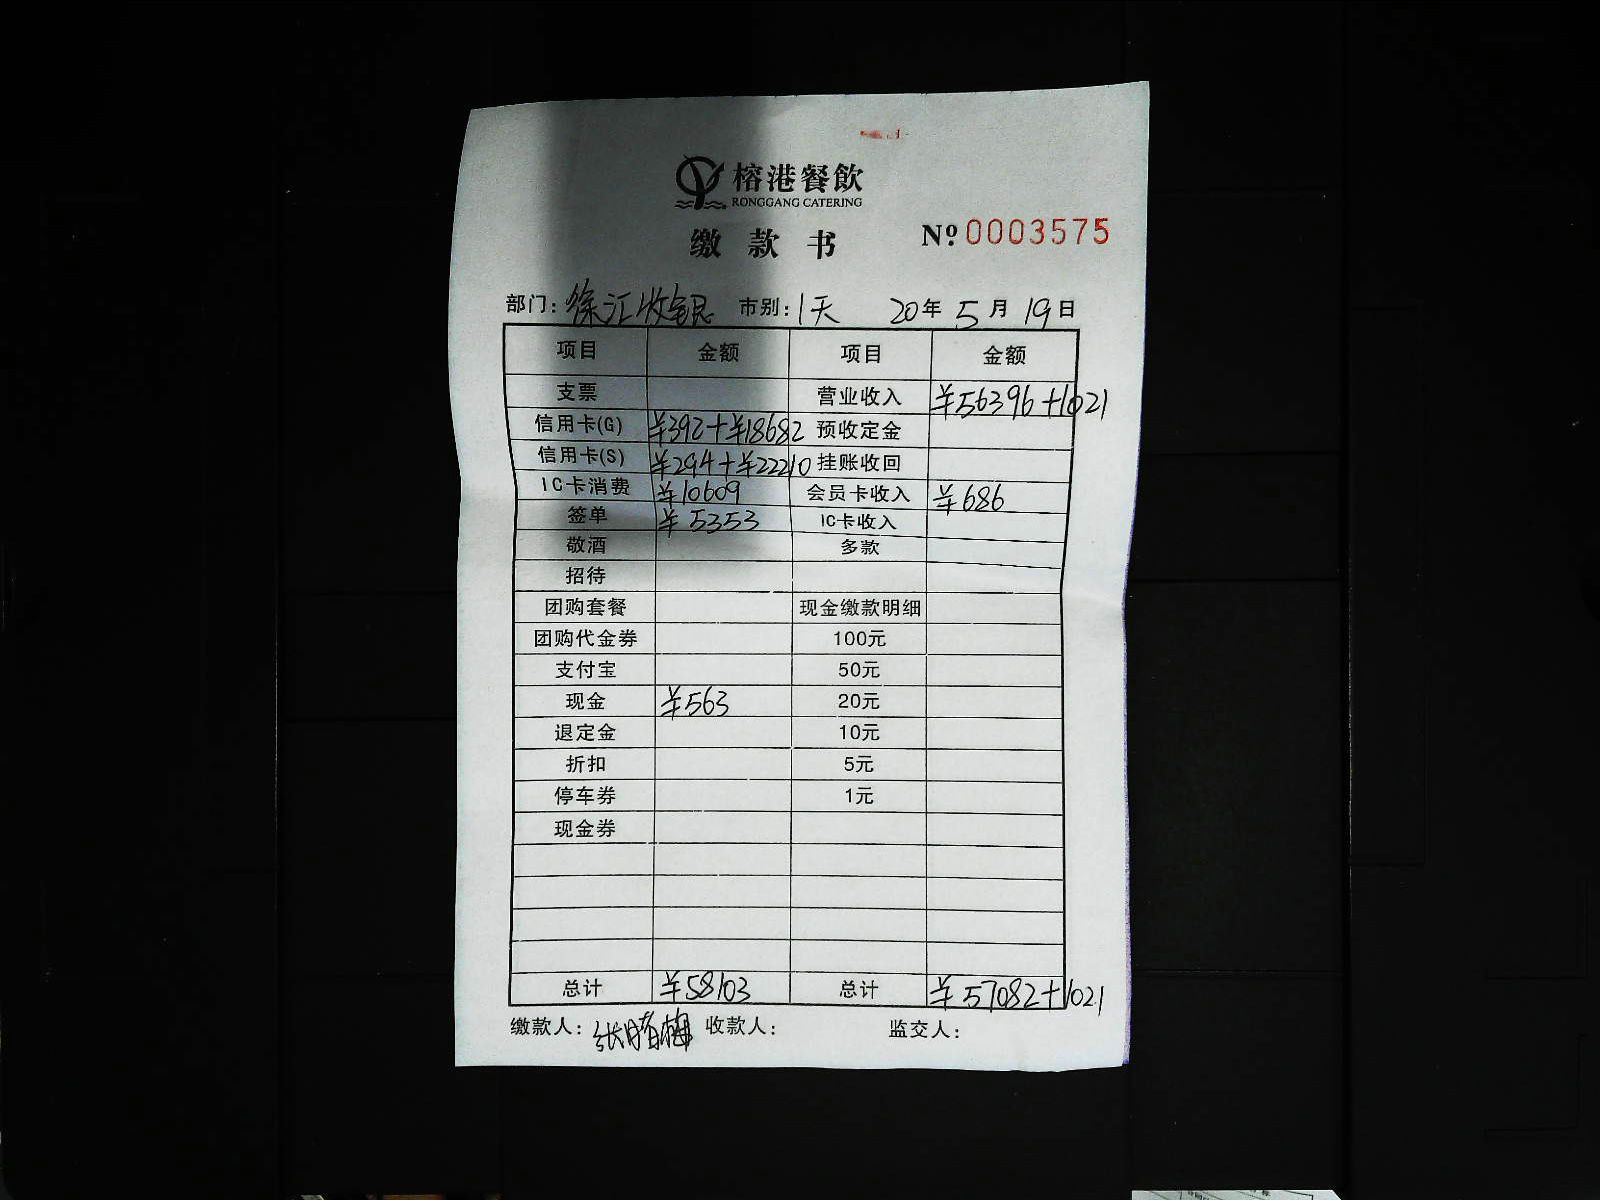 榕港餐飲
RONGGANG CATERING
缴款书
№ 0003575
部门: 徐汇收银 市别: 1天 20年 5月 19日
项目 金额 项目 金额
支票 营业收入 ¥56396+1021
信用卡(G) ¥392+¥18682 预收定金
信用卡(S) ¥294+¥22210 挂账收回
IC卡消费 ¥10609 会员卡收入 ¥686
签单 ¥5353 IC卡收入
敬酒 多款
招待
团购套餐 现金缴款明细
团购代金券 100元
支付宝 50元
现金 ¥563 20元
退定金 10元
折扣 5元
停车券 1元
现金券
总计 ¥58103 总计 ¥57082+1021
缴款人: 收款人: 监交人: